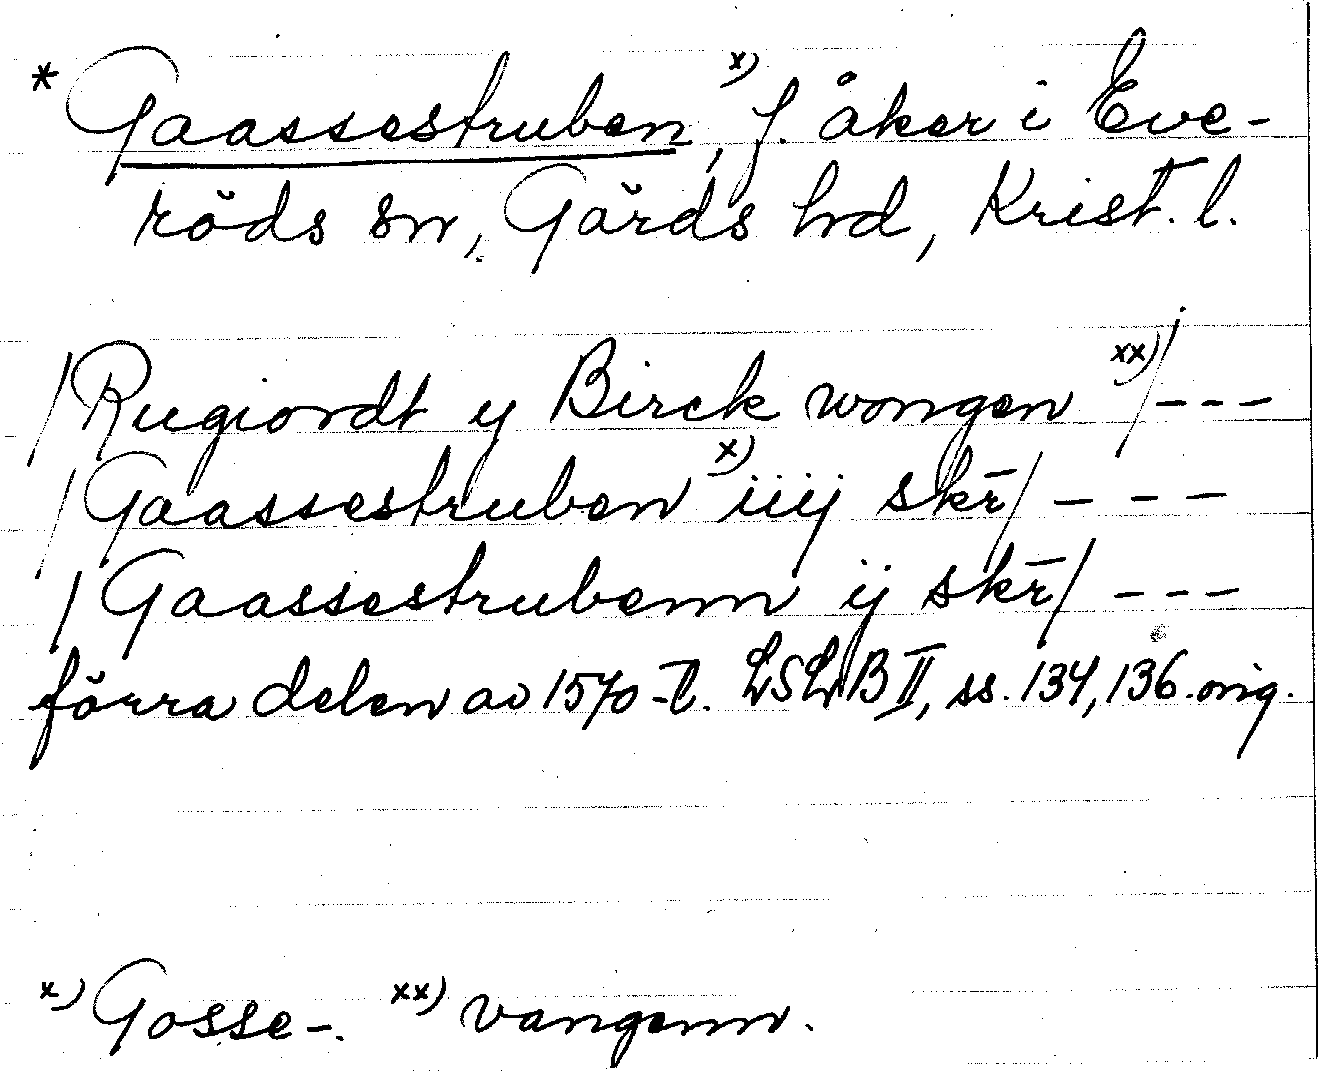 * Gaassestruben, x) f. åker i Eve-
röds sn, Gärds hd, Krist. l.
/Rugiordt y Birck wongen xx)/---
/Gaassestruben x) iiij skr̄/ - - -
/Gaassestrubenn ij skr̄/ ---
förra delen av 1570-t. LSLB II, ss. 134, 136. orig.
x) Gosse-. xx) vangenn.